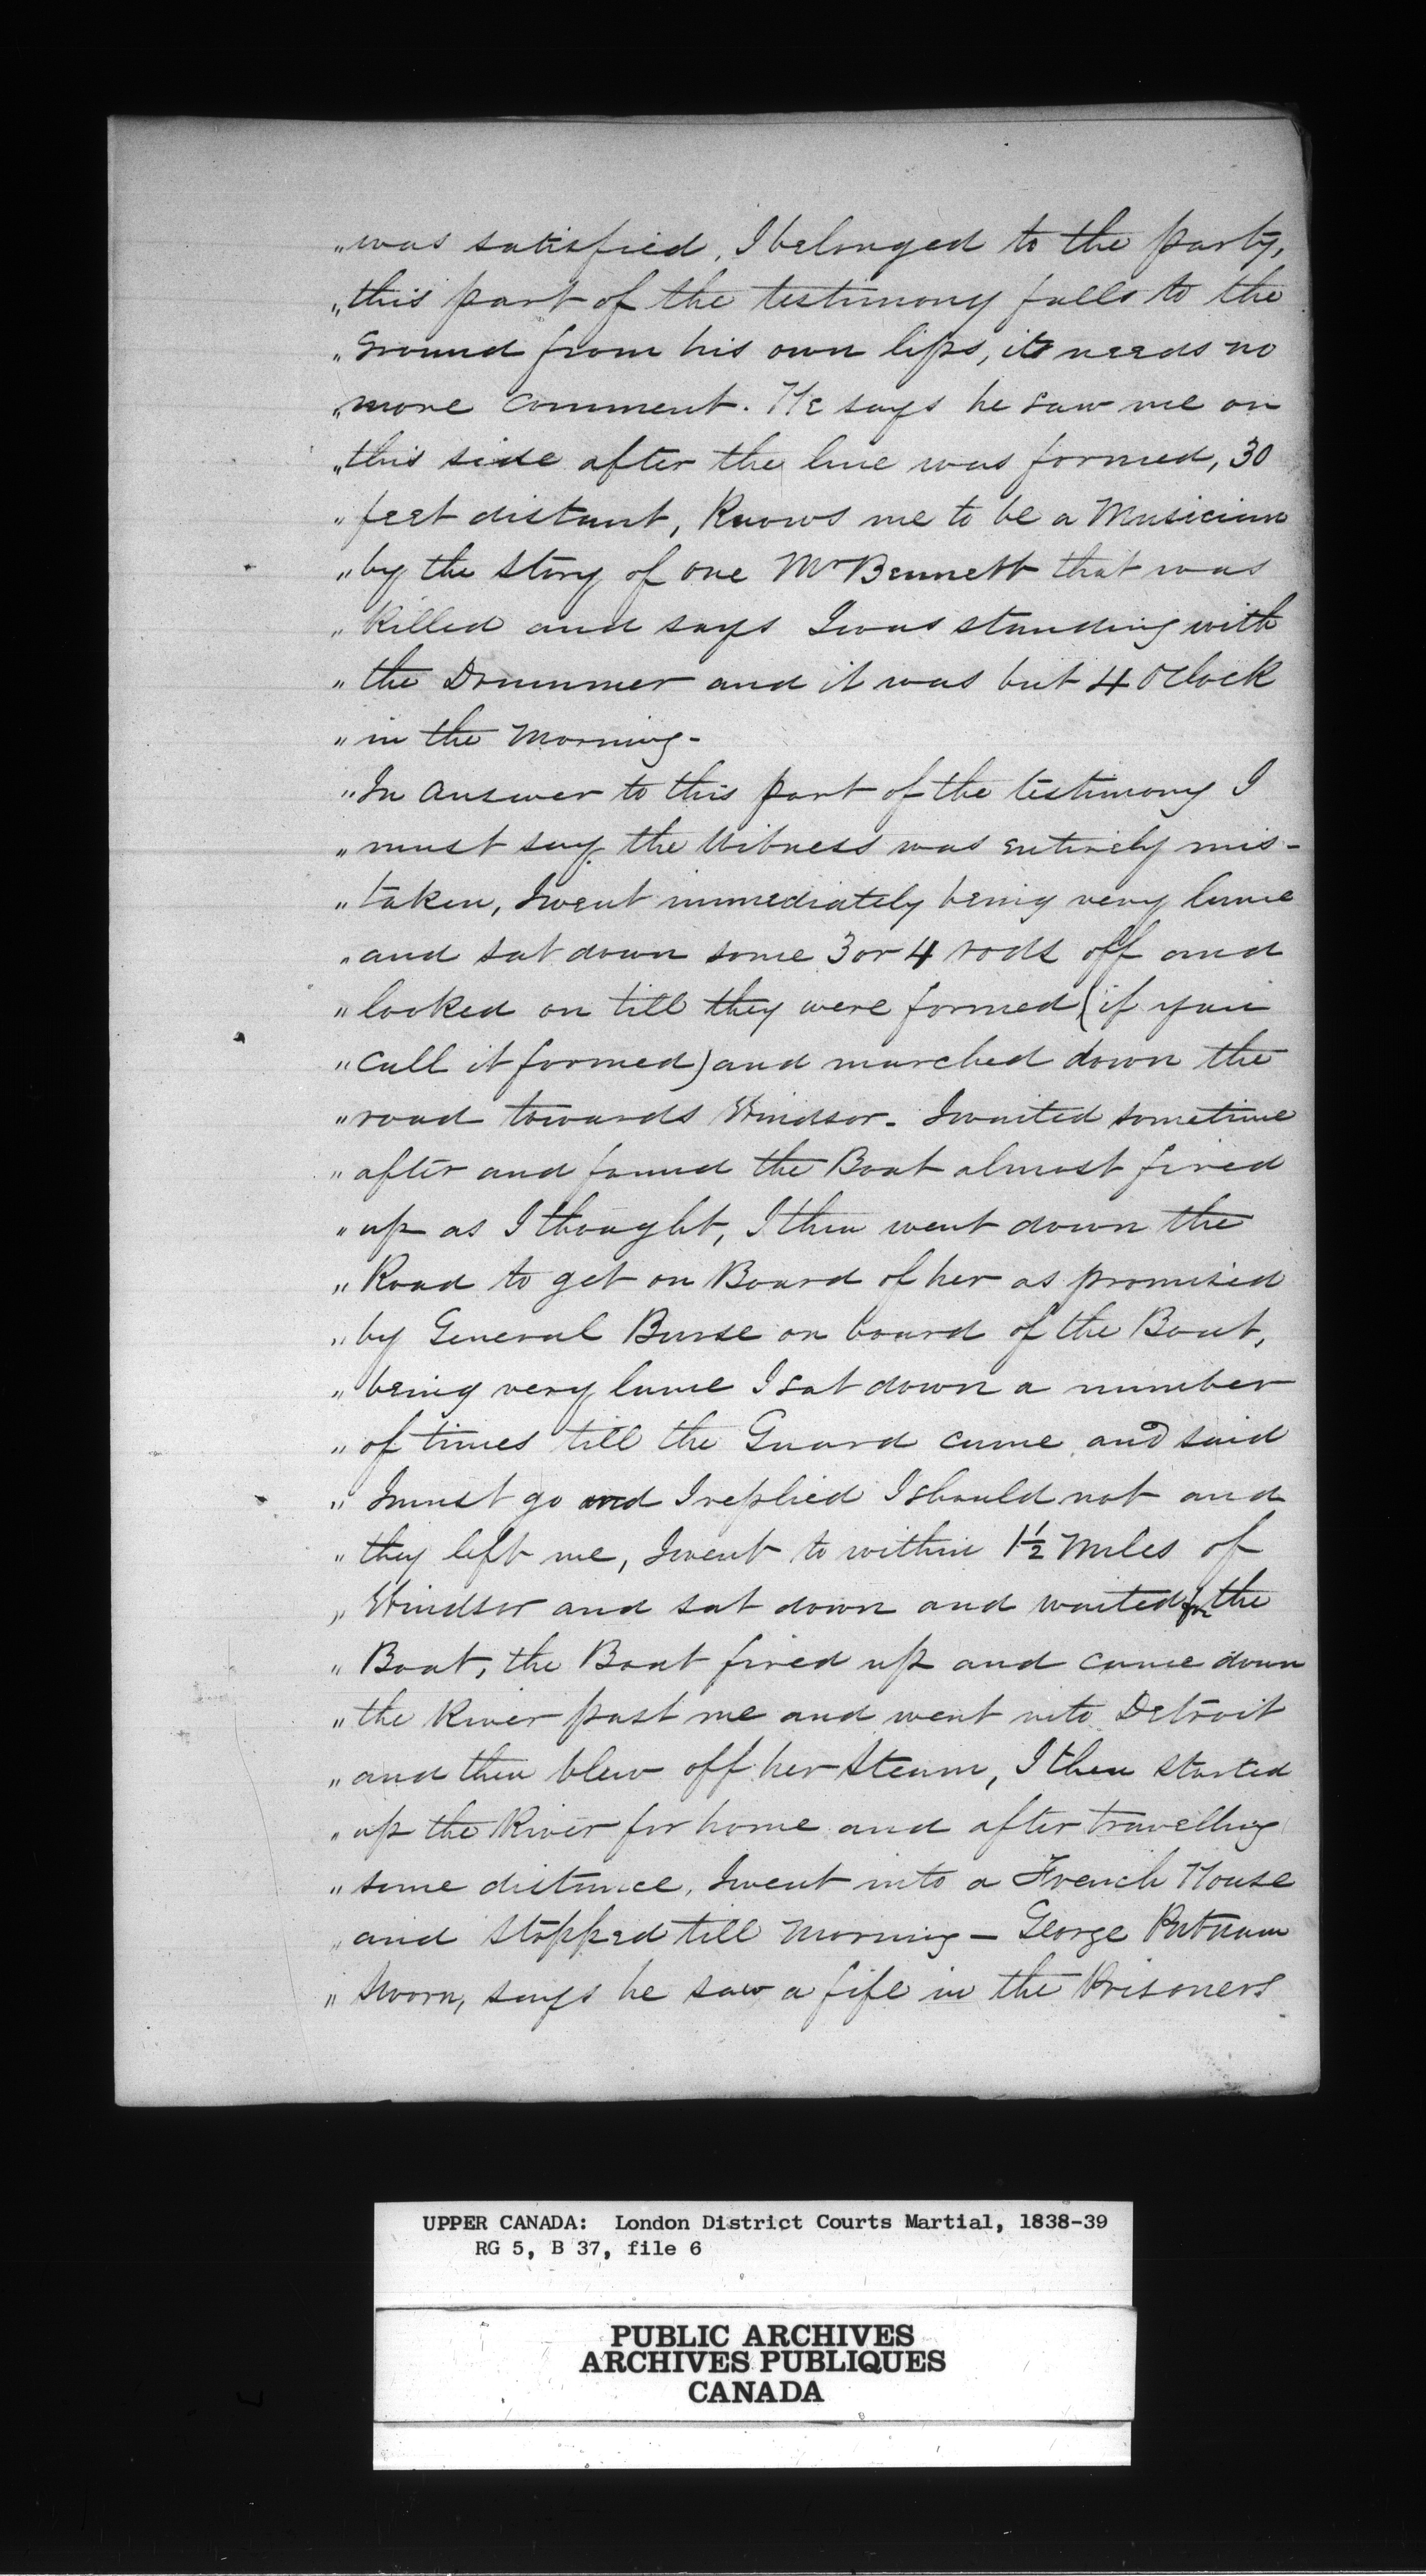 „ was satisfied, I belonged to the party,
„ this part of the testimony falls to the
„ Ground from his own lips, it needs no
„ more comment. He says he saw me on
„ this side after the line was formed, 30
„ feet distant, Knows me to be a Musician
„ by the story of one Mr Bennett that was
„ Killed and says I was standing with
„ the Drummer and it was but 4 OClock
„ in the Morning-
„ In answer to this part of the testimony I
„ must say the Witness was entirely mis-
„ taken, I went immediately being very lame
„ and sat down some 3 or 4 rods off and
„ looked on till they were formed (if you
„ call it formed) and marched down the
„ road towards Windsor. I waited sometime
„ after and found the Boat almost fired
„ up as I thought, I then went down the
„ Road to get on Board of her as promised
„ by General Burse on board of the Boat,
„ being very lame I sat down a number
„ of times till the Guard came and said
„ I must go and I replied I should not and
„ they left me, I went to within 1½ Miles of
„ Windsor and sat down and waited for the
„ Boat, the Boat fired up and came down
„ the River past me and went into Detroit
„ and then blew off her Steam, I then started
„ up the River for home and after travelling
„ some distance, I went into a French House
„ and stopped till Morning — George Putnam
„ Sworn, says he saw a fife in the Prisoners
UPPER CANADA: London District Courts Martial, 1838-39
RG 5, B 37, file 6
PUBLIC ARCHIVES
ARCHIVES PUBLIQUES
CANADA